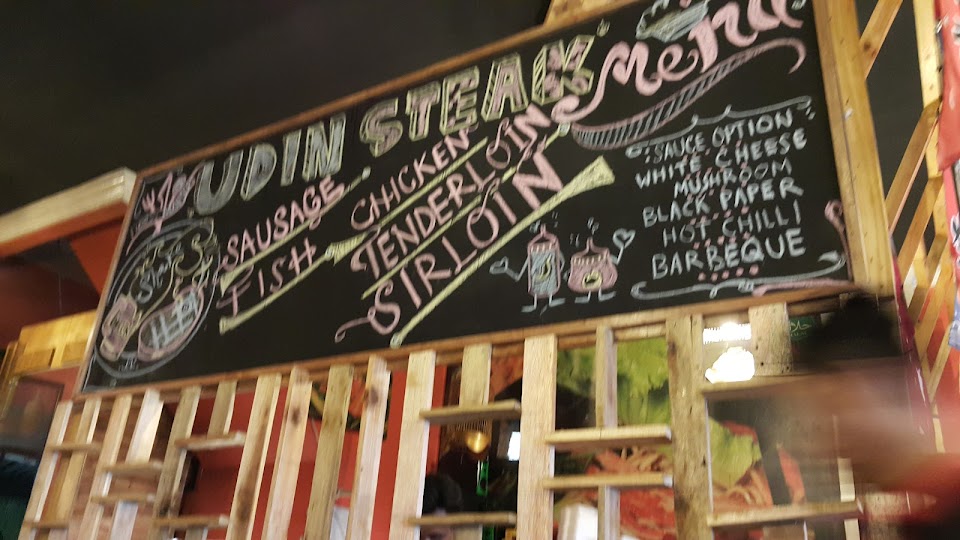 UDIN STEAK
Menu
Steaks
SAUSAGE
FISH
CHICKEN
TENDERLOIN
SIRLOIN
SAUCE OPTION
WHITE CHEESE
MUSHROOM
BLACK PAPER
HOT CHILLI
BARBEQUE